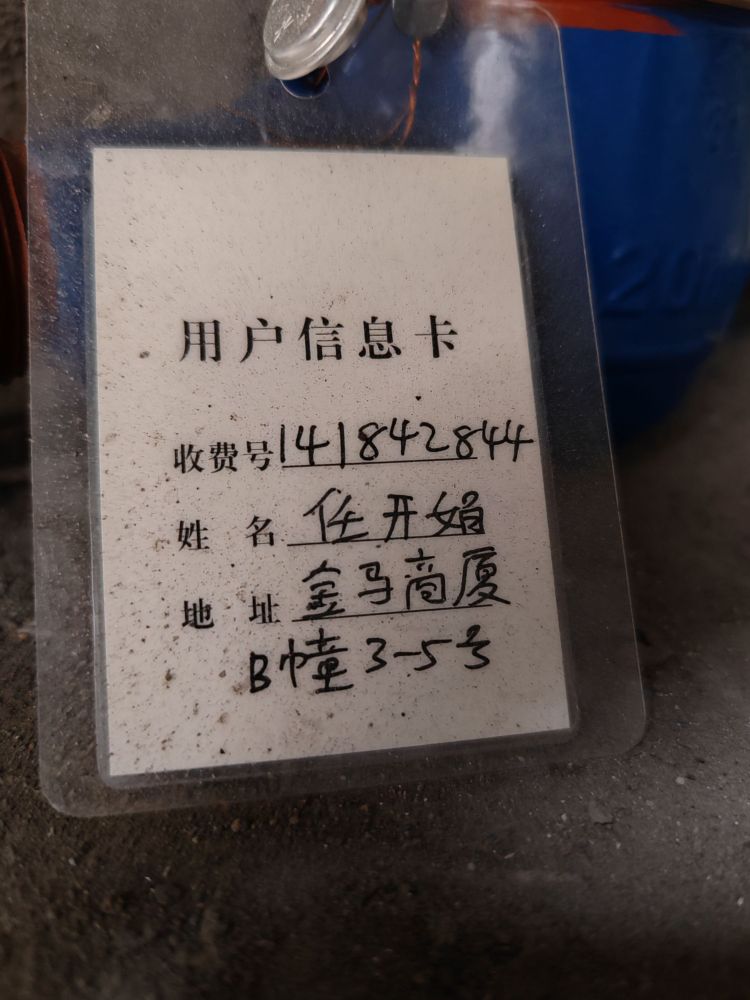 用户信息卡
收费号 141842844
姓名 任开娟
地址 金马商厦
B幢3-5号